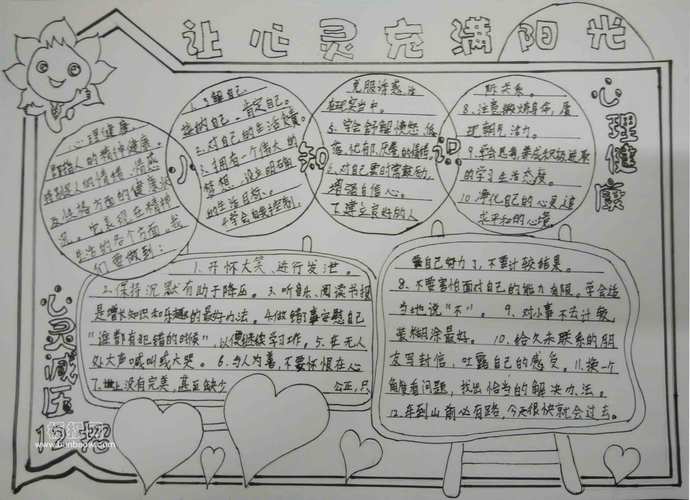 让心灵充满阳光
心理健康
小知识
心理健康,
是指人的精神健康,
情感
及性格方面的健康状
况。它表现在精神
生活的各个方面,我
们要做到:
1.了解自己
接纳自己,肯定自己。
2.对自己的生活负责。
3.拥有一个伟大的
梦想,设立明确
的生活目标。
4.学会自我控制,
克服诱惑
5.学会舒缓愤怒、低
落、忧郁、厌烦的情绪。
6.对自己要时常鼓励,
增强自信心。
7.建立良好的人
际关系。
8.注意锻炼身体,展
现朝气活力。
9.学会思考,养成积极进取
的学习生活态度。
10.净化自己的心灵,追
求平和的心境。
心灵减压
1.开怀大笑、进行发泄。
2.保持沉默有助于降压。3.听音乐、阅读书报
是增长知识和乐趣的最好办法。4.做错了事安慰自己
“谁都有犯错的时候”,以便继续学习工作。5.在无人
处大声喊叫或大哭。6.与人为善,不要怀恨在心
7.世上没有完美,甚至缺少 公正,只
要自己努力了,不要计较结果。
8.不要害怕面对自己的能力有限,学会适
当地说“不”。9.对小事不去计较,
装糊涂最好。10.给久未联系的朋
友写封信,吐露自己的感受。11.换一个
角度看问题,找出恰当的解决办法。
12.车到山前必有路,今天很快就会过去。